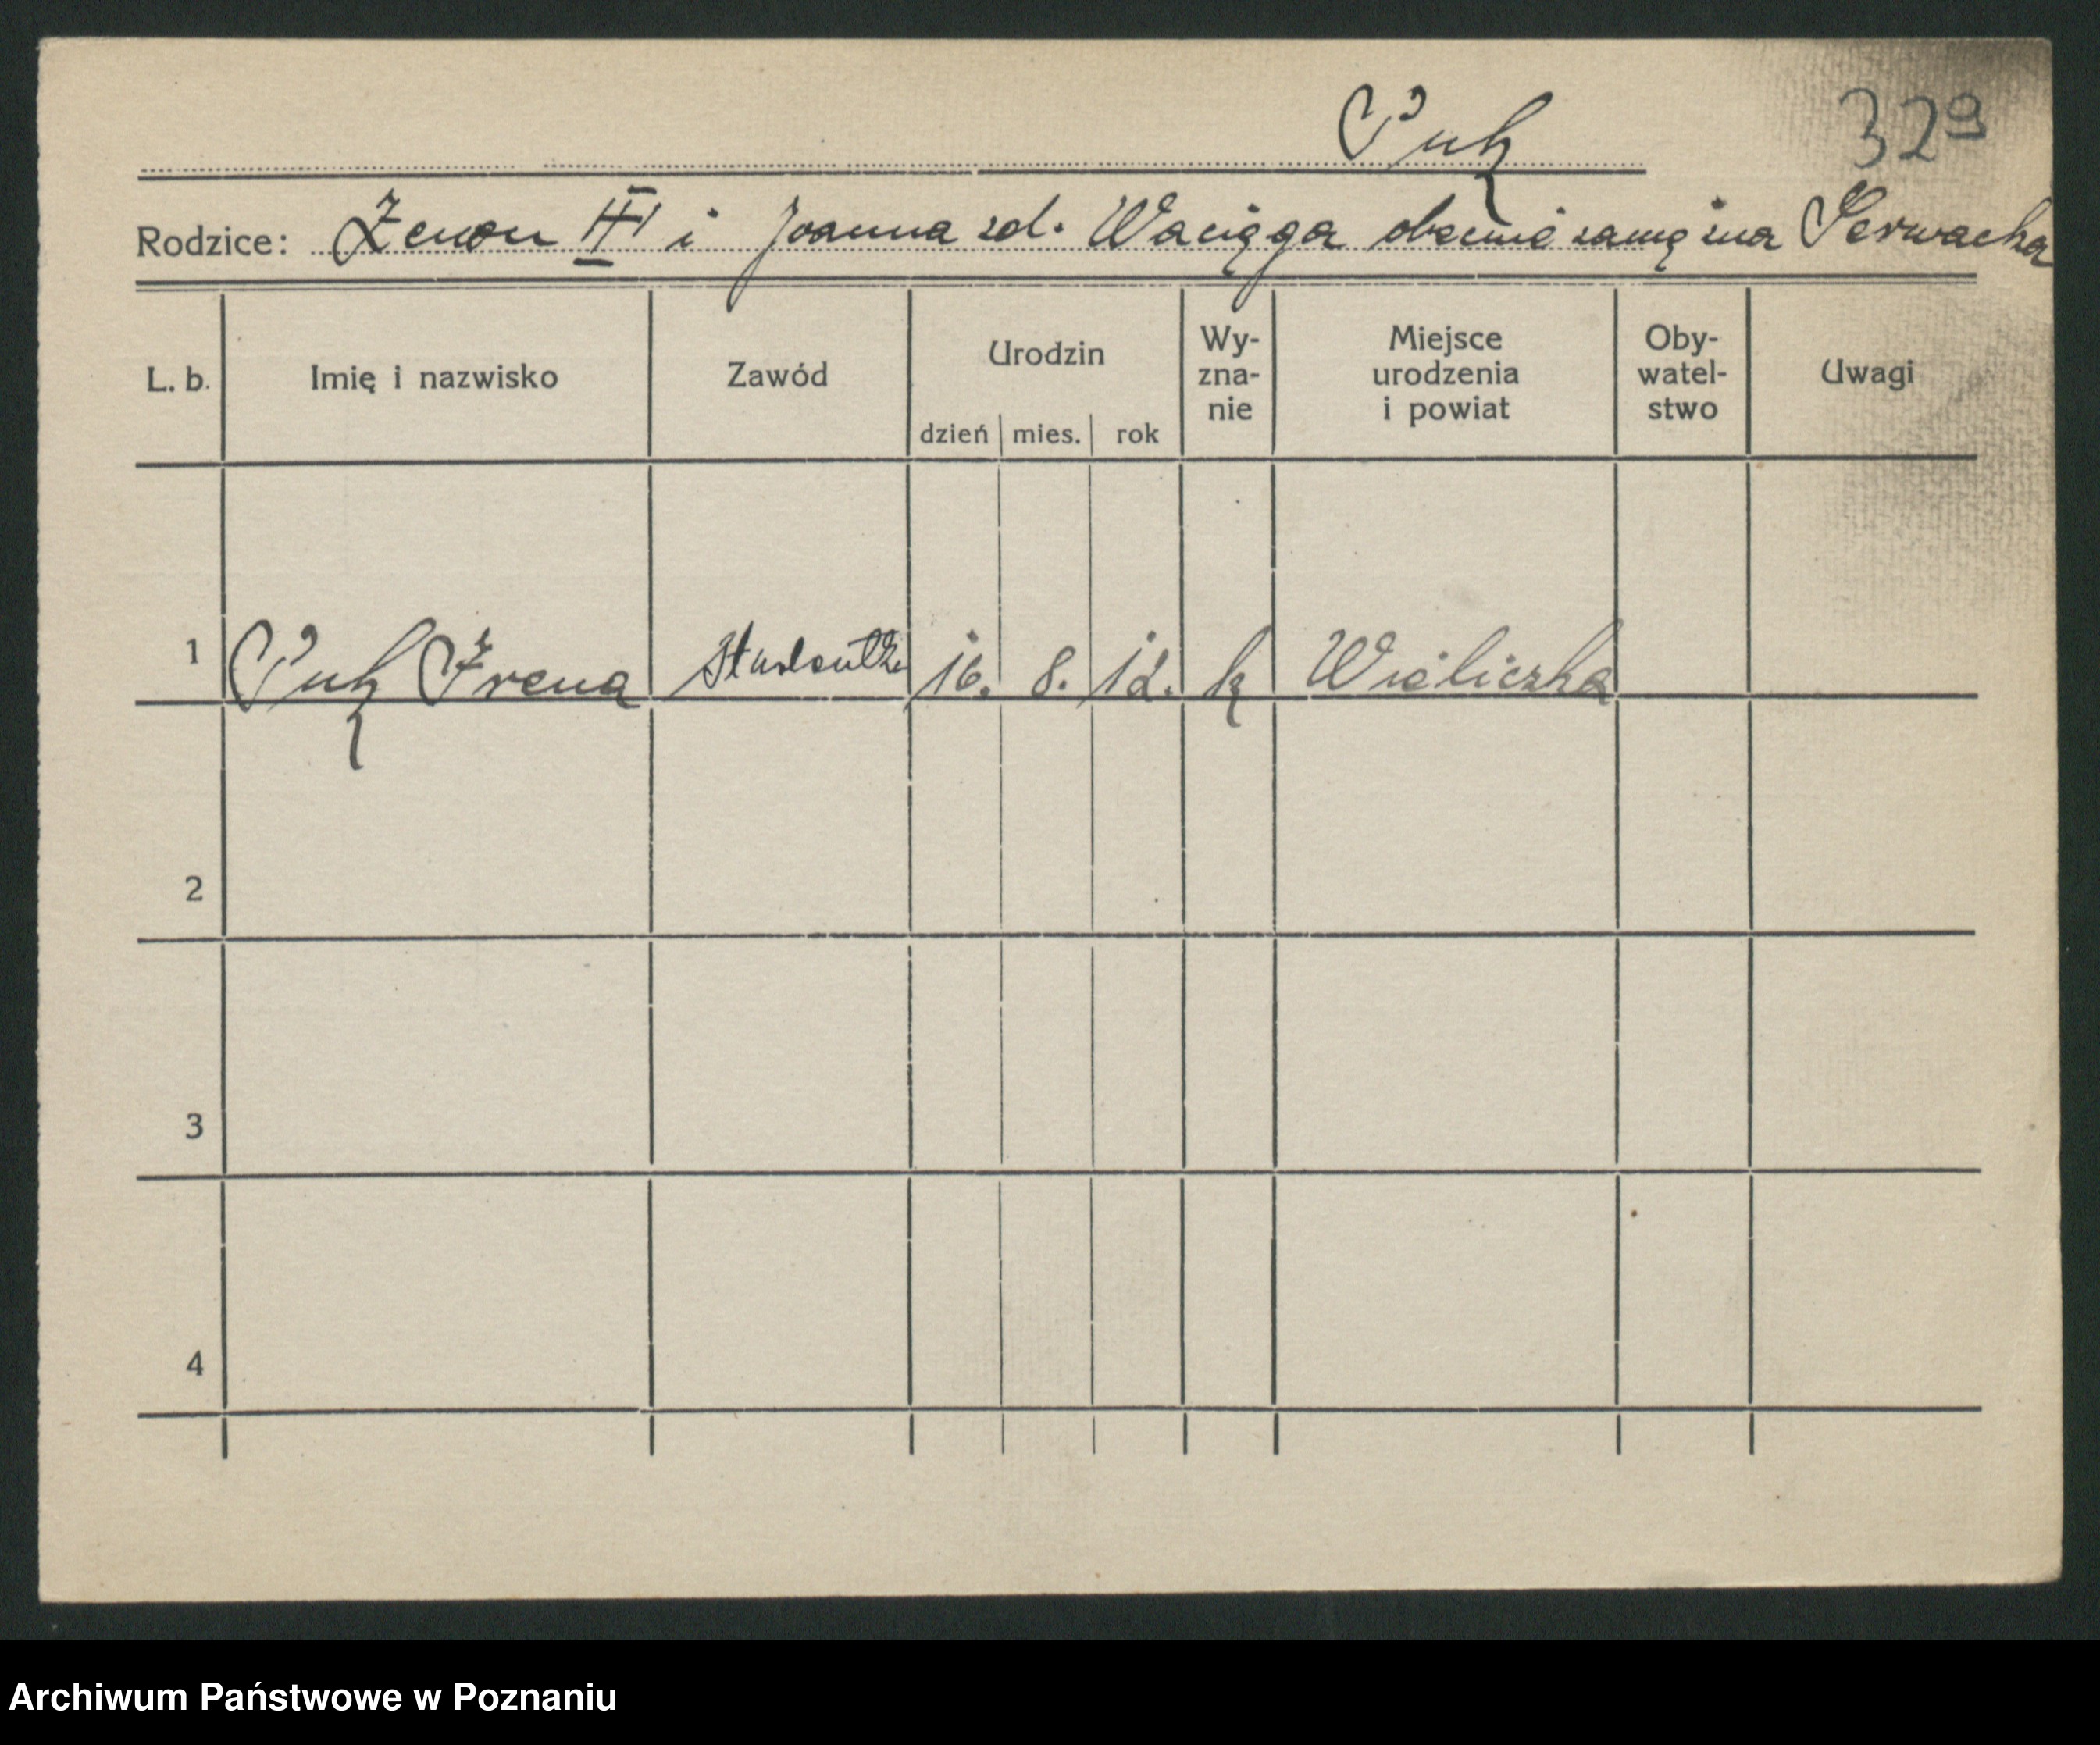 Puk 329
Rodzice: Zenon III i Joanna zd. Wacięga obecnie zamężna Serwacka
L. b. Imię i nazwisko Zawód Urodzin dzień mies. rok Wy-zna-nie Miejsce urodzenia i powiat Oby-watel-stwo Uwagi
1 Puk Irena studentka 16. 8. 12. k Wieliczka
2
3
4
Archiwum Państwowe w Poznaniu